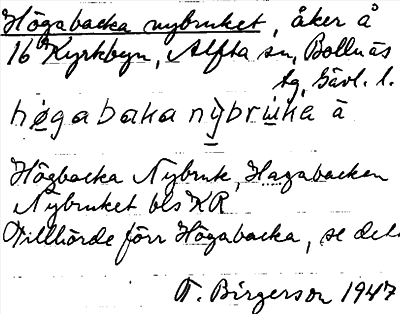 Högabacka nybruket, åker å
16 Kyrkbyn, Alfta sn, Bollnäs
tg, Gävl. l.
høgabaka nỳbruka ä
Högbacka Nybruk, Hagabacken
Nybruket bls KR
Tillhörde förr Högabacka, se det.
T. Birgerson 1947